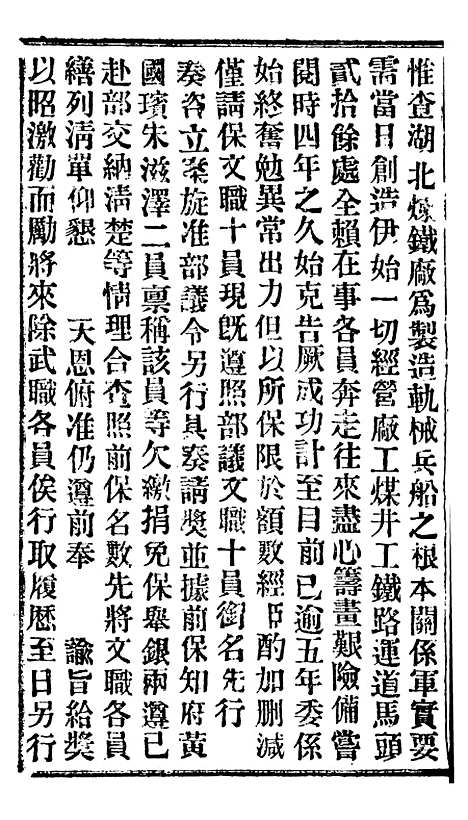 惟查湖北煉鐵廠爲製造軌械兵船之根本關係軍實要
需當日創造伊始一切經營廠工煤井工鐵路運道馬頭
貳拾餘處全賴在事各員奔走往來盡心籌畫艱險備嘗
閱時四年之久始克告厥成功計至目前已逾五年委係
始終奮勉異常出力但以所保限於額數經臣酌加删減
僅請保文職十員現旣遵照部議文職十員銜名先行
奏咨立案旋准部議令另行具奏請獎並據前保知府黃
國璸朱滋澤二員禀稱該員等欠繳捐免保舉銀兩遵已
赴部交納淸楚等情理合查照前保名數先將文職各員
繕列淸單仰懇 天恩俯准仍遵前奉 諭旨給獎
以昭激勸而勵將來除武職各員俟行取履歷至日另行